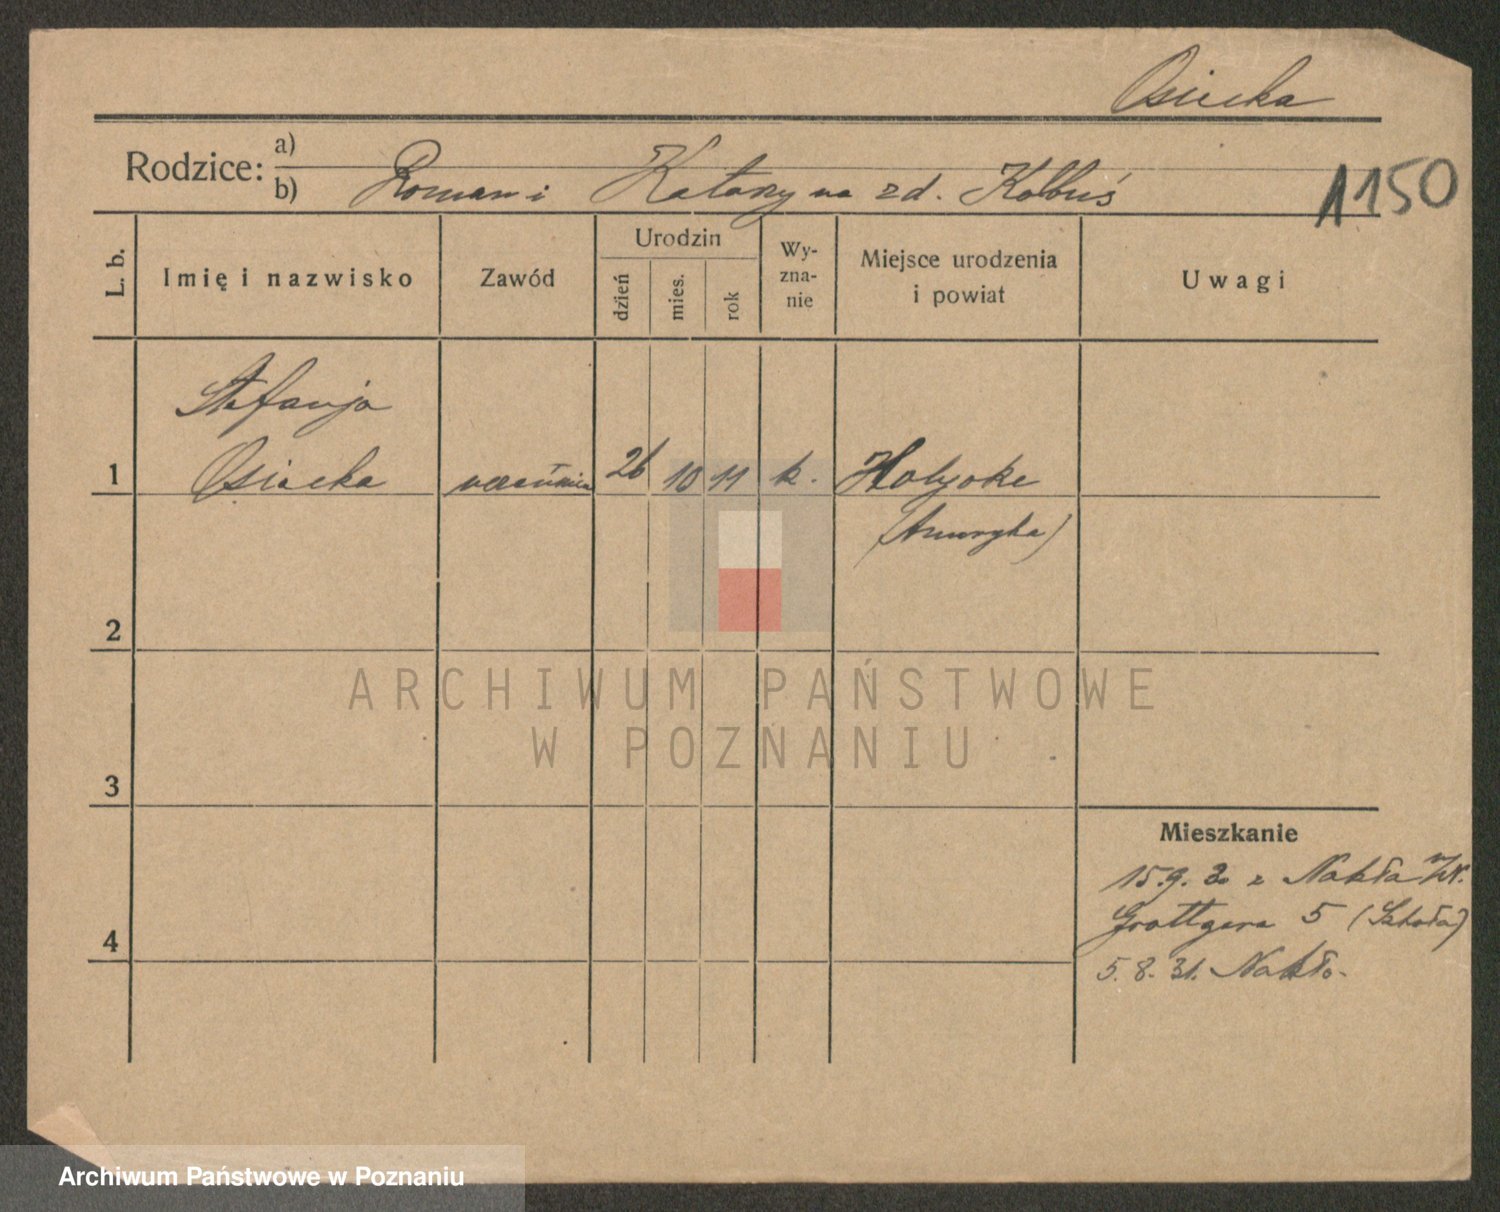 Osiecka
Rodzice: a)
b) Roman i Katarzyna zd. Kolbuś
1150
L. b.
Imię i nazwisko
Zawód
Urodzin
dzień
mies.
rok
Wy-
zna-
nie
Miejsce urodzenia
i powiat
Uwagi
Stefanja
1 Osiecka uczennica 26 10 11 k. Holyoke
(Ameryka)
2
ARCHIWUM PAŃSTWOWE
W POZNANIU
3
Mieszkanie
15.9.30 z Nakła
Grottgera 5 (Szkoła)
4
5.8.31. Nakło.
Archiwum Państwowe w Poznaniu